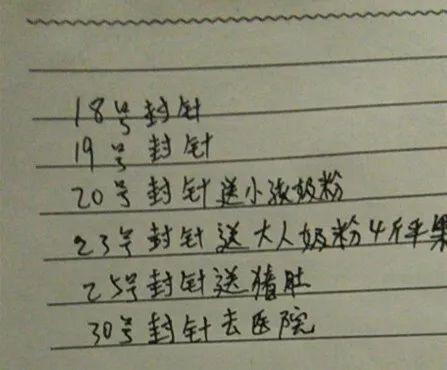 18号封针
19号封针
20号封针送小孩奶粉
23号封针送大人奶粉4斤苹果
25号封针送猪肚
30号封针去医院